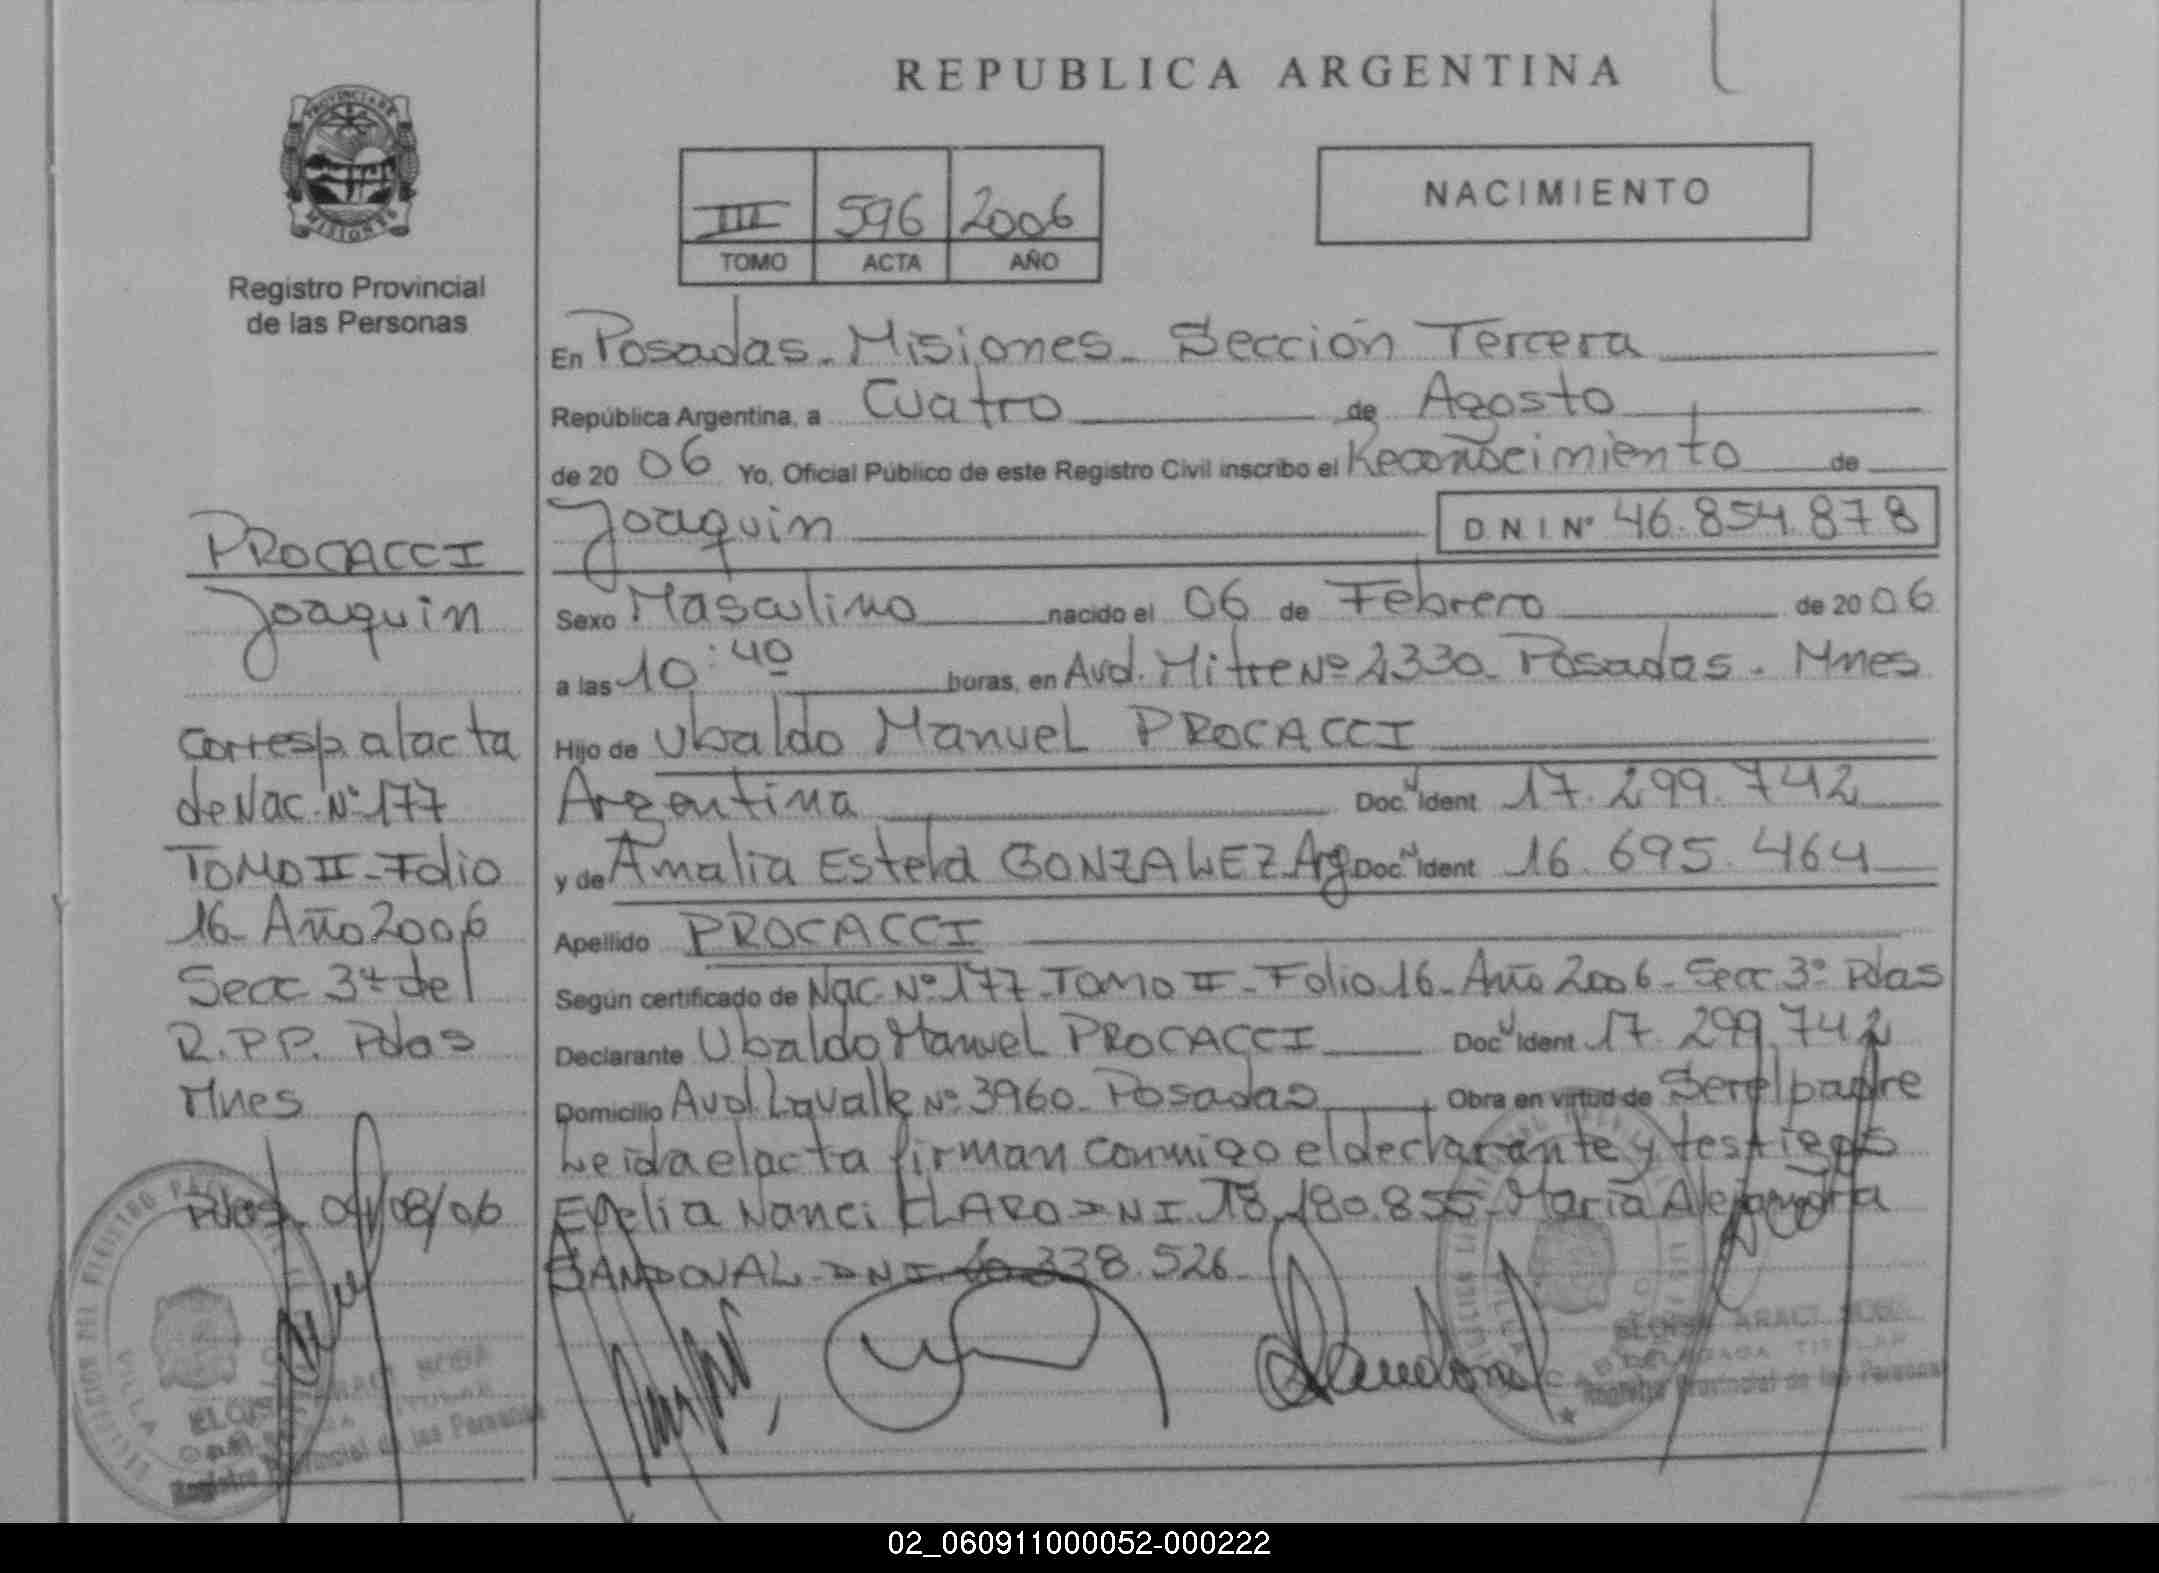 REPUBLICA ARGENTINA
PROVINCIA DE
MISIONES
Registro Provincial
de las Personas
III 596 2006
TOMO ACTA AÑO
NACIMIENTO
En Posadas - Misiones - Sección Tercera
República Argentina, a Cuatro de Agosto
de 20 06 Yo, Oficial Público de este Registro Civil inscribo el Reconocimiento de
Joaquin D N I Nº 46.854.878
Sexo Masculino nacido el 06 de Febrero de 20 06
a las 10:40 horas, en Avd. Mitre Nº 2330 - Posadas - Mnes
Hijo de Ubaldo Manuel PROCACCI
Argentina Doc. Ident 17.299.742
y de Amalia Estela GONZALEZ Arg Doc. Ident 16.695.464
Apellido PROCACCI
Según certificado de Nac. Nº 177 - Tomo II - Folio 16 - Año 2006 - Secc. 3º Pdas
Declarante Ubaldo Manuel PROCACCI Doc. Ident 17.299.742
Domicilio Avd. Lavalle Nº 3960 - Posadas Obra en virtud de Ser el padre
Leida el acta firman conmigo el declarante y testigos
Nanci CLARO DNI 18.180.855 - Maria Alejandra
SANDOVAL - DNI 338.526
PROCACCI
Joaquin
Corresp. al acta
de Nac. Nº 177
TOMO II - Folio
16 - Año 2006
Secc. 3ª del
R.P.P. Pdas
Mnes
Pdas. 04/08/06
Registro Provincial de las Personas
Registro Provincial de las Personas
02_060911000052-000222